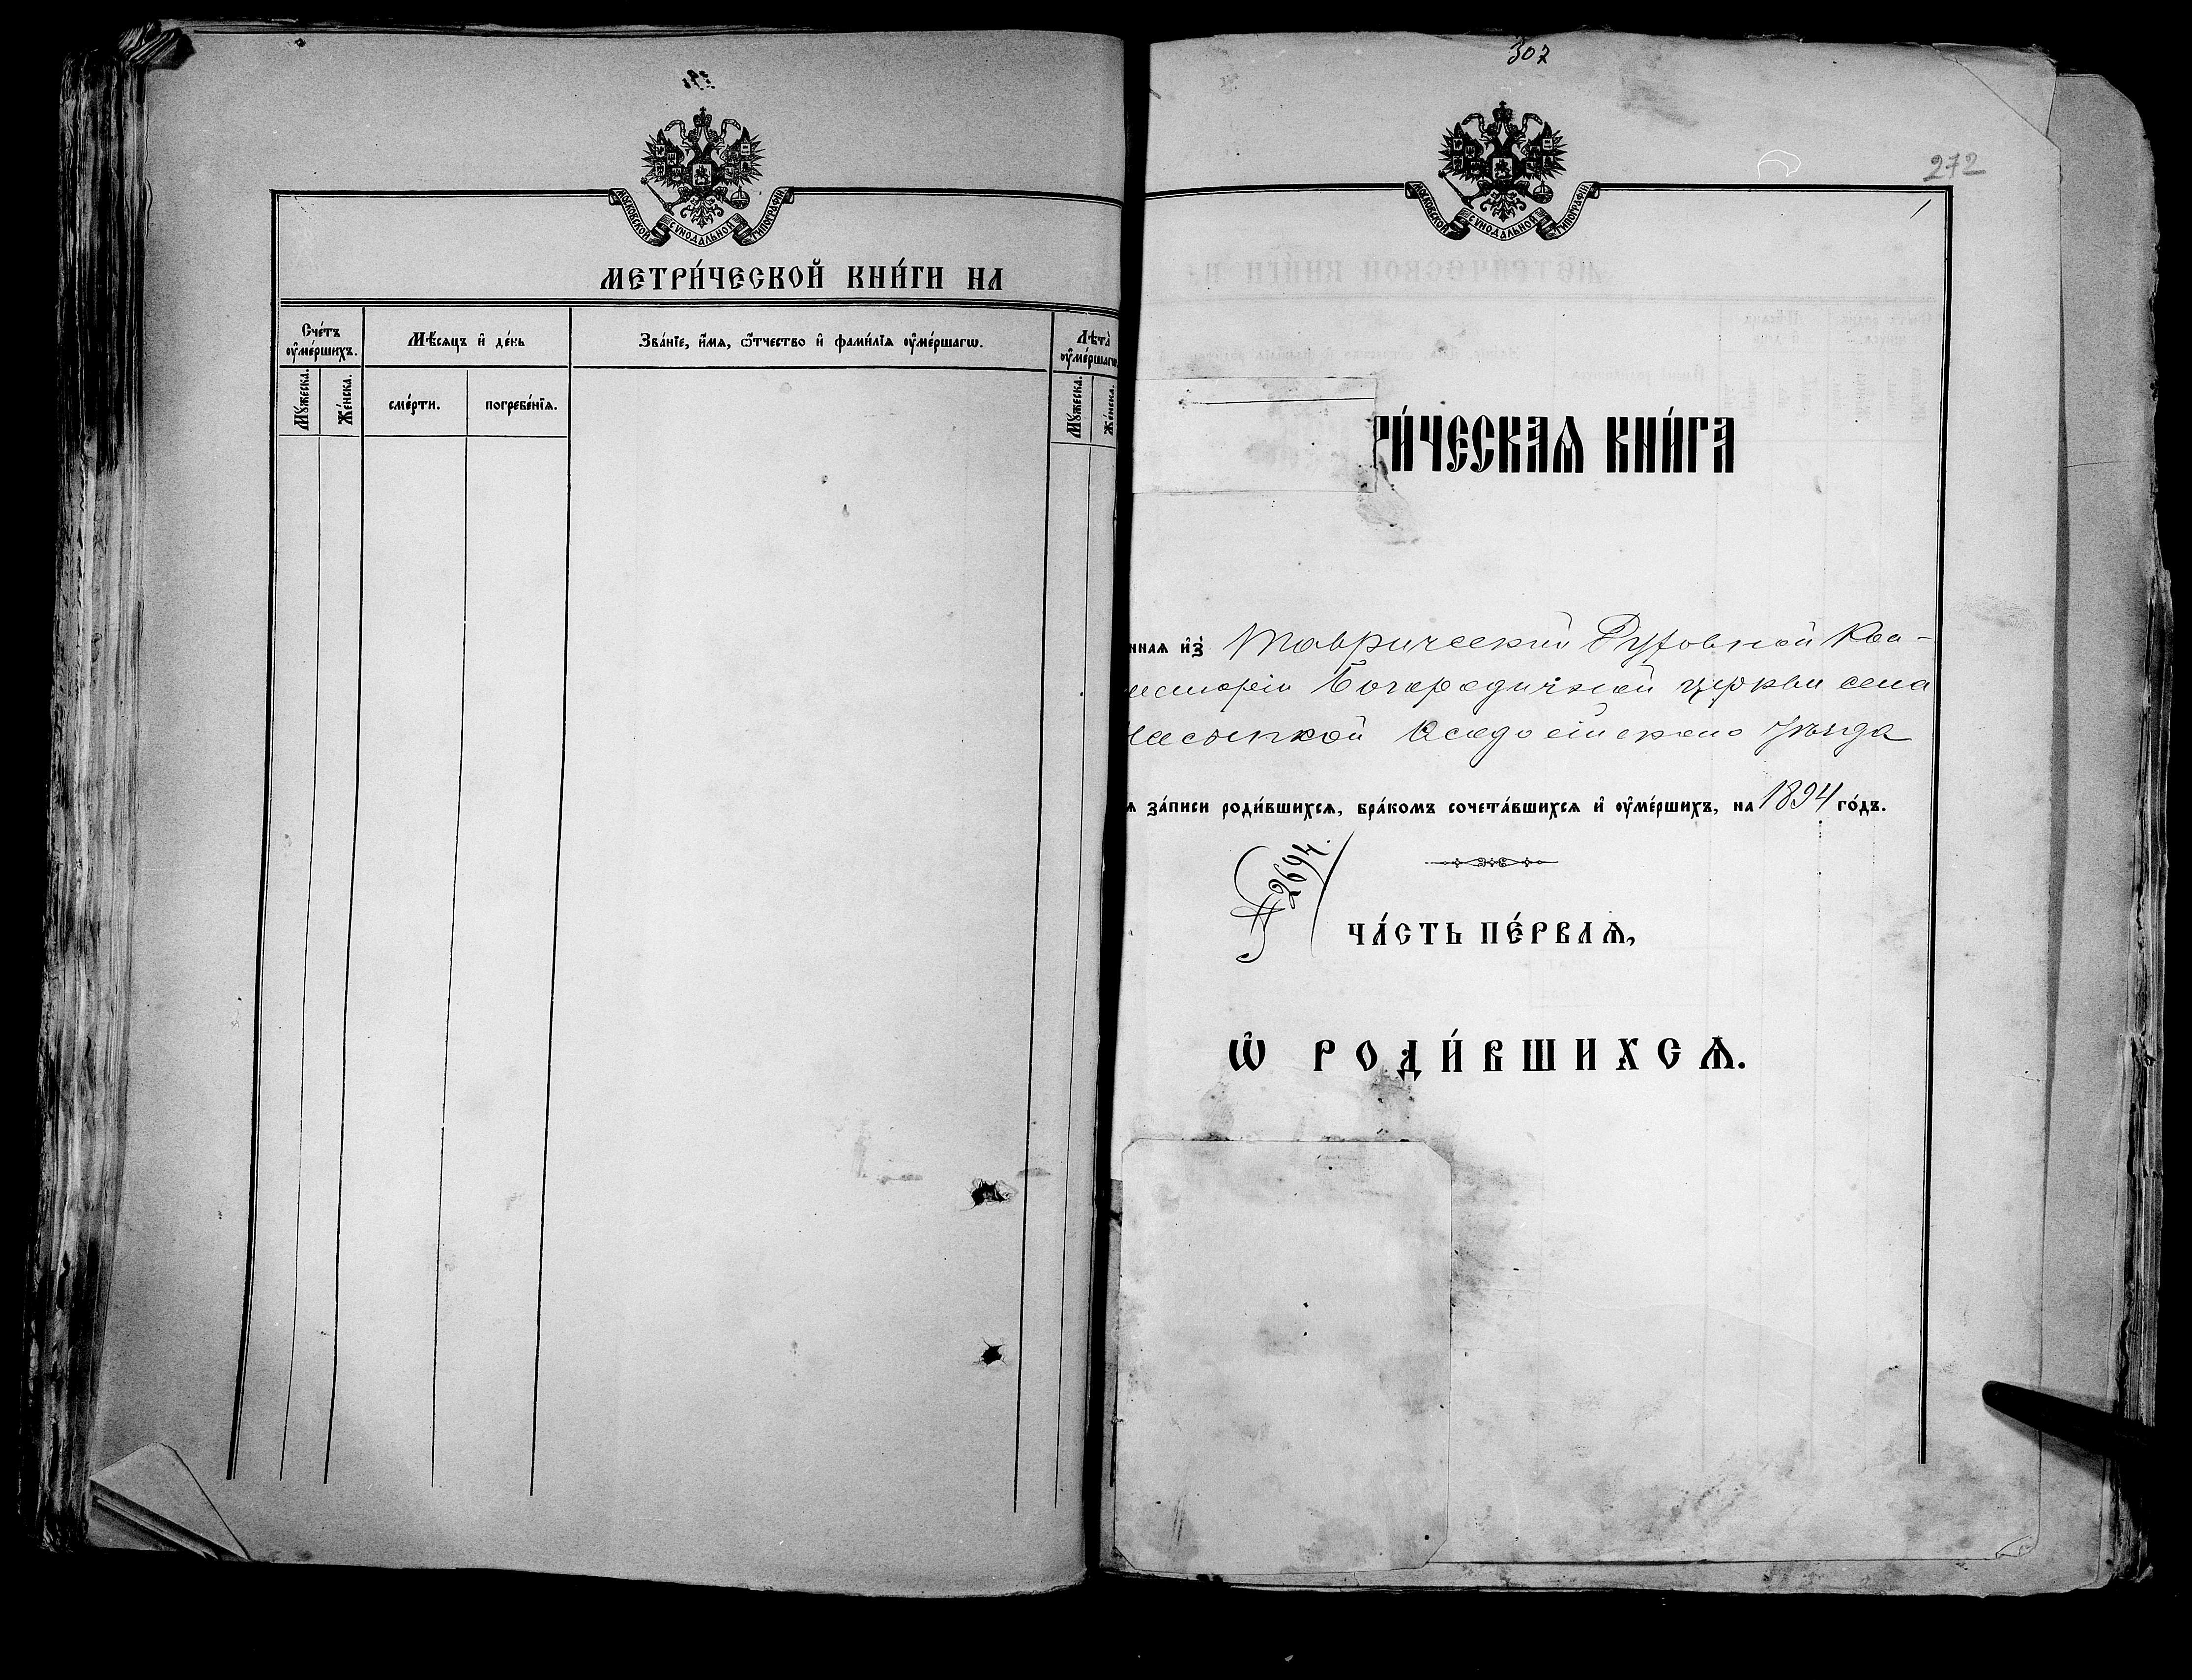 МОСКОВСКОЙ СѴНОДАЛЬНОЙ ТИПОГРАФІИ
МЕТРИ́ЧЕСКОЙ КНИ́ГИ НА
Сче́тъ оу҆ме́ршихъ.
Мѣ́сяцъ и҆ де́нь
Зва́нїе, и҆́мя, ѻ҆́тчество и҆ фами́лїя оу҆ме́ршагѡ.
Лѣ́та оу҆ме́ршагѡ
Мꙋ́жеска.
Же́нска.
сме́рти.
погребе́нїя.
Мꙋ́жеска.
Же́нска.
307
272
1
МОСКОВСКОЙ СѴНОДАЛЬНОЙ ТИПОГРАФІИ
РИ́ЧЕСКАѦ КНИ́ГА
нная и҆з̾ Таврической Духовной Кон-
систоріи Богородичной церкви села
Насыпкой Ѳеодосійскаго уѣзда
я за́писи роди́вшихся, бра́комъ сочета́вшихся и҆ оу҆ме́ршихъ, на 1894 го́дъ.
№ 2694.
ЧА́СТЬ ПЕ́РВАѦ,
Ѽ РОДИ́ВШИХСѦ.